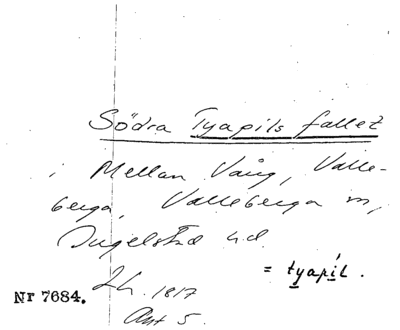 Södra Tyapils fallet
i Mellan Vång, Valle-
berga, Valleberga sn,
Ingelstad hd.
= tyapil.
Lh. 1817
Nr 7684.
Akt 5.